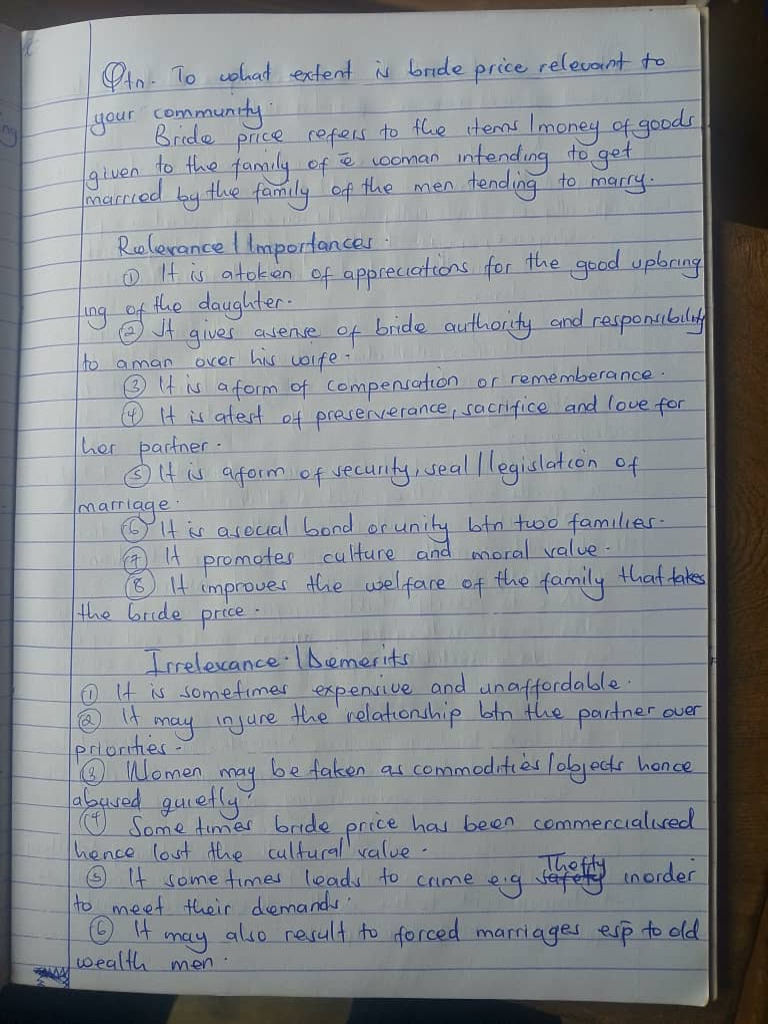 Qtn. To what extent is bride price relevant to
your community.
Bride price refers to the items /money of goods
given to the family of ē wooman intending to get
married by the family of the men tending to marry.
Relevance / Importances.
① It is atoken of appreciations for the good upbring
ing of the daughter.
② It gives asense of bride authority and responsibility
to aman over his wife.
③ It is aform of compensation or rememberance.
④ It is atest of preserverance, sacrifice and love for
her partner.
⑤ It is aform of security, seal / legislation of
marriage.
⑥ It is asocial bond or unity btn two families.
⑦ It promotes culture and moral value.
⑧ It improves the welfare of the family that takes
the bride price.
Irrelevance. / Demerits
① It is sometimes expensive and unaffordable.
② It may injure the relationship btn the partner over
priorities.
③ Women may be taken as commodities /objects hence
abused quietly.
④ Some times bride price has been commercialised
hence lost the cultural value.
⑤ It some times leads to crime e.g Thefty inorder
to meet their demands.
⑥ It may also result to forced marriages esp to old
wealth men.